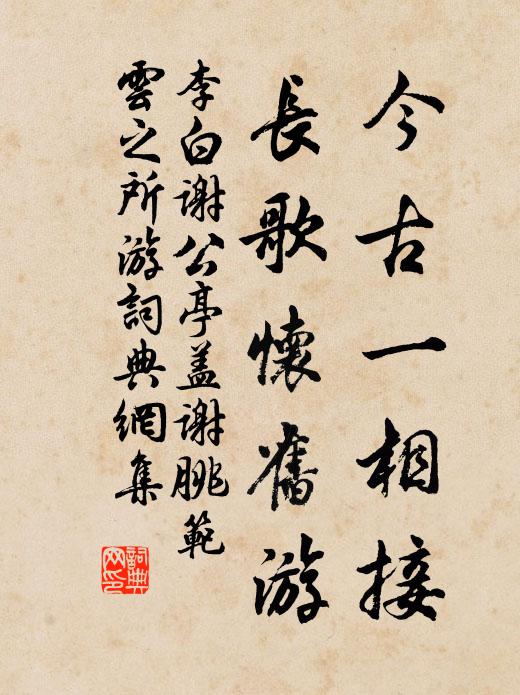 今古一相接
長歌懷舊游
李白謝公亭蓋謝脁範
雲之所游詞典網集
詞典網印